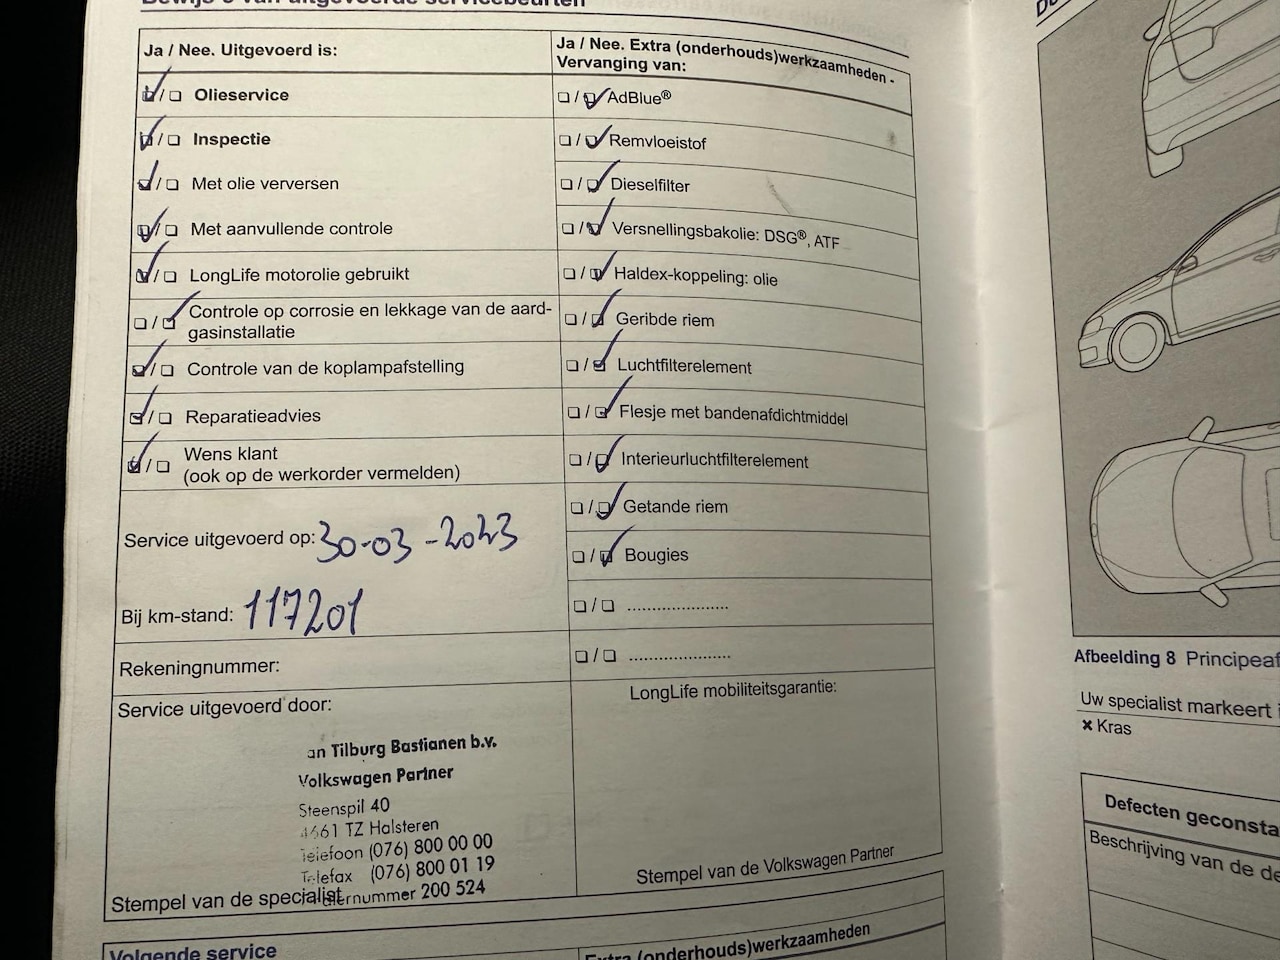 Bewijs van uitgevoerde servicebeurten
Ja / Nee. Uitgevoerd is:
☑ / ☐ Olieservice
☑ / ☐ Inspectie
☑ / ☐ Met olie verversen
☑ / ☐ Met aanvullende controle
☑ / ☐ LongLife motorolie gebruikt
☐ / ☑ Controle op corrosie en lekkage van de aard-
gasinstallatie
☑ / ☐ Controle van de koplampafstelling
☑ / ☐ Reparatieadvies
☑ / ☐ Wens klant
(ook op de werkorder vermelden)
Service uitgevoerd op: 30-03-2023
Bij km-stand: 117201
Rekeningnummer:
Service uitgevoerd door:
an Tilburg Bastianen b.v.
Volkswagen Partner
Steenspil 40
4661 TZ Halsteren
Telefoon (076) 800 00 00
Telefax (076) 800 01 19
nummer 200 524
Stempel van de specialist
Ja / Nee. Extra (onderhouds)werkzaamheden -
Vervanging van:
☐ / ☑ AdBlue®
☐ / ☑ Remvloeistof
☐ / ☑ Dieselfilter
☐ / ☑ Versnellingsbakolie: DSG®, ATF
☐ / ☑ Haldex-koppeling: olie
☐ / ☑ Geribde riem
☐ / ☑ Luchtfilterelement
☐ / ☑ Flesje met bandenafdichtmiddel
☐ / ☑ Interieurluchtfilterelement
☐ / ☑ Getande riem
☐ / ☑ Bougies
☐ / ☐ .....................
☐ / ☐ .....................
LongLife mobiliteitsgarantie:
Stempel van de Volkswagen Partner
Volgende service
Extra (onderhouds)werkzaamheden
Afbeelding 8 Principeaf
Uw specialist markeert
× Kras
Defecten geconsta
Beschrijving van de de